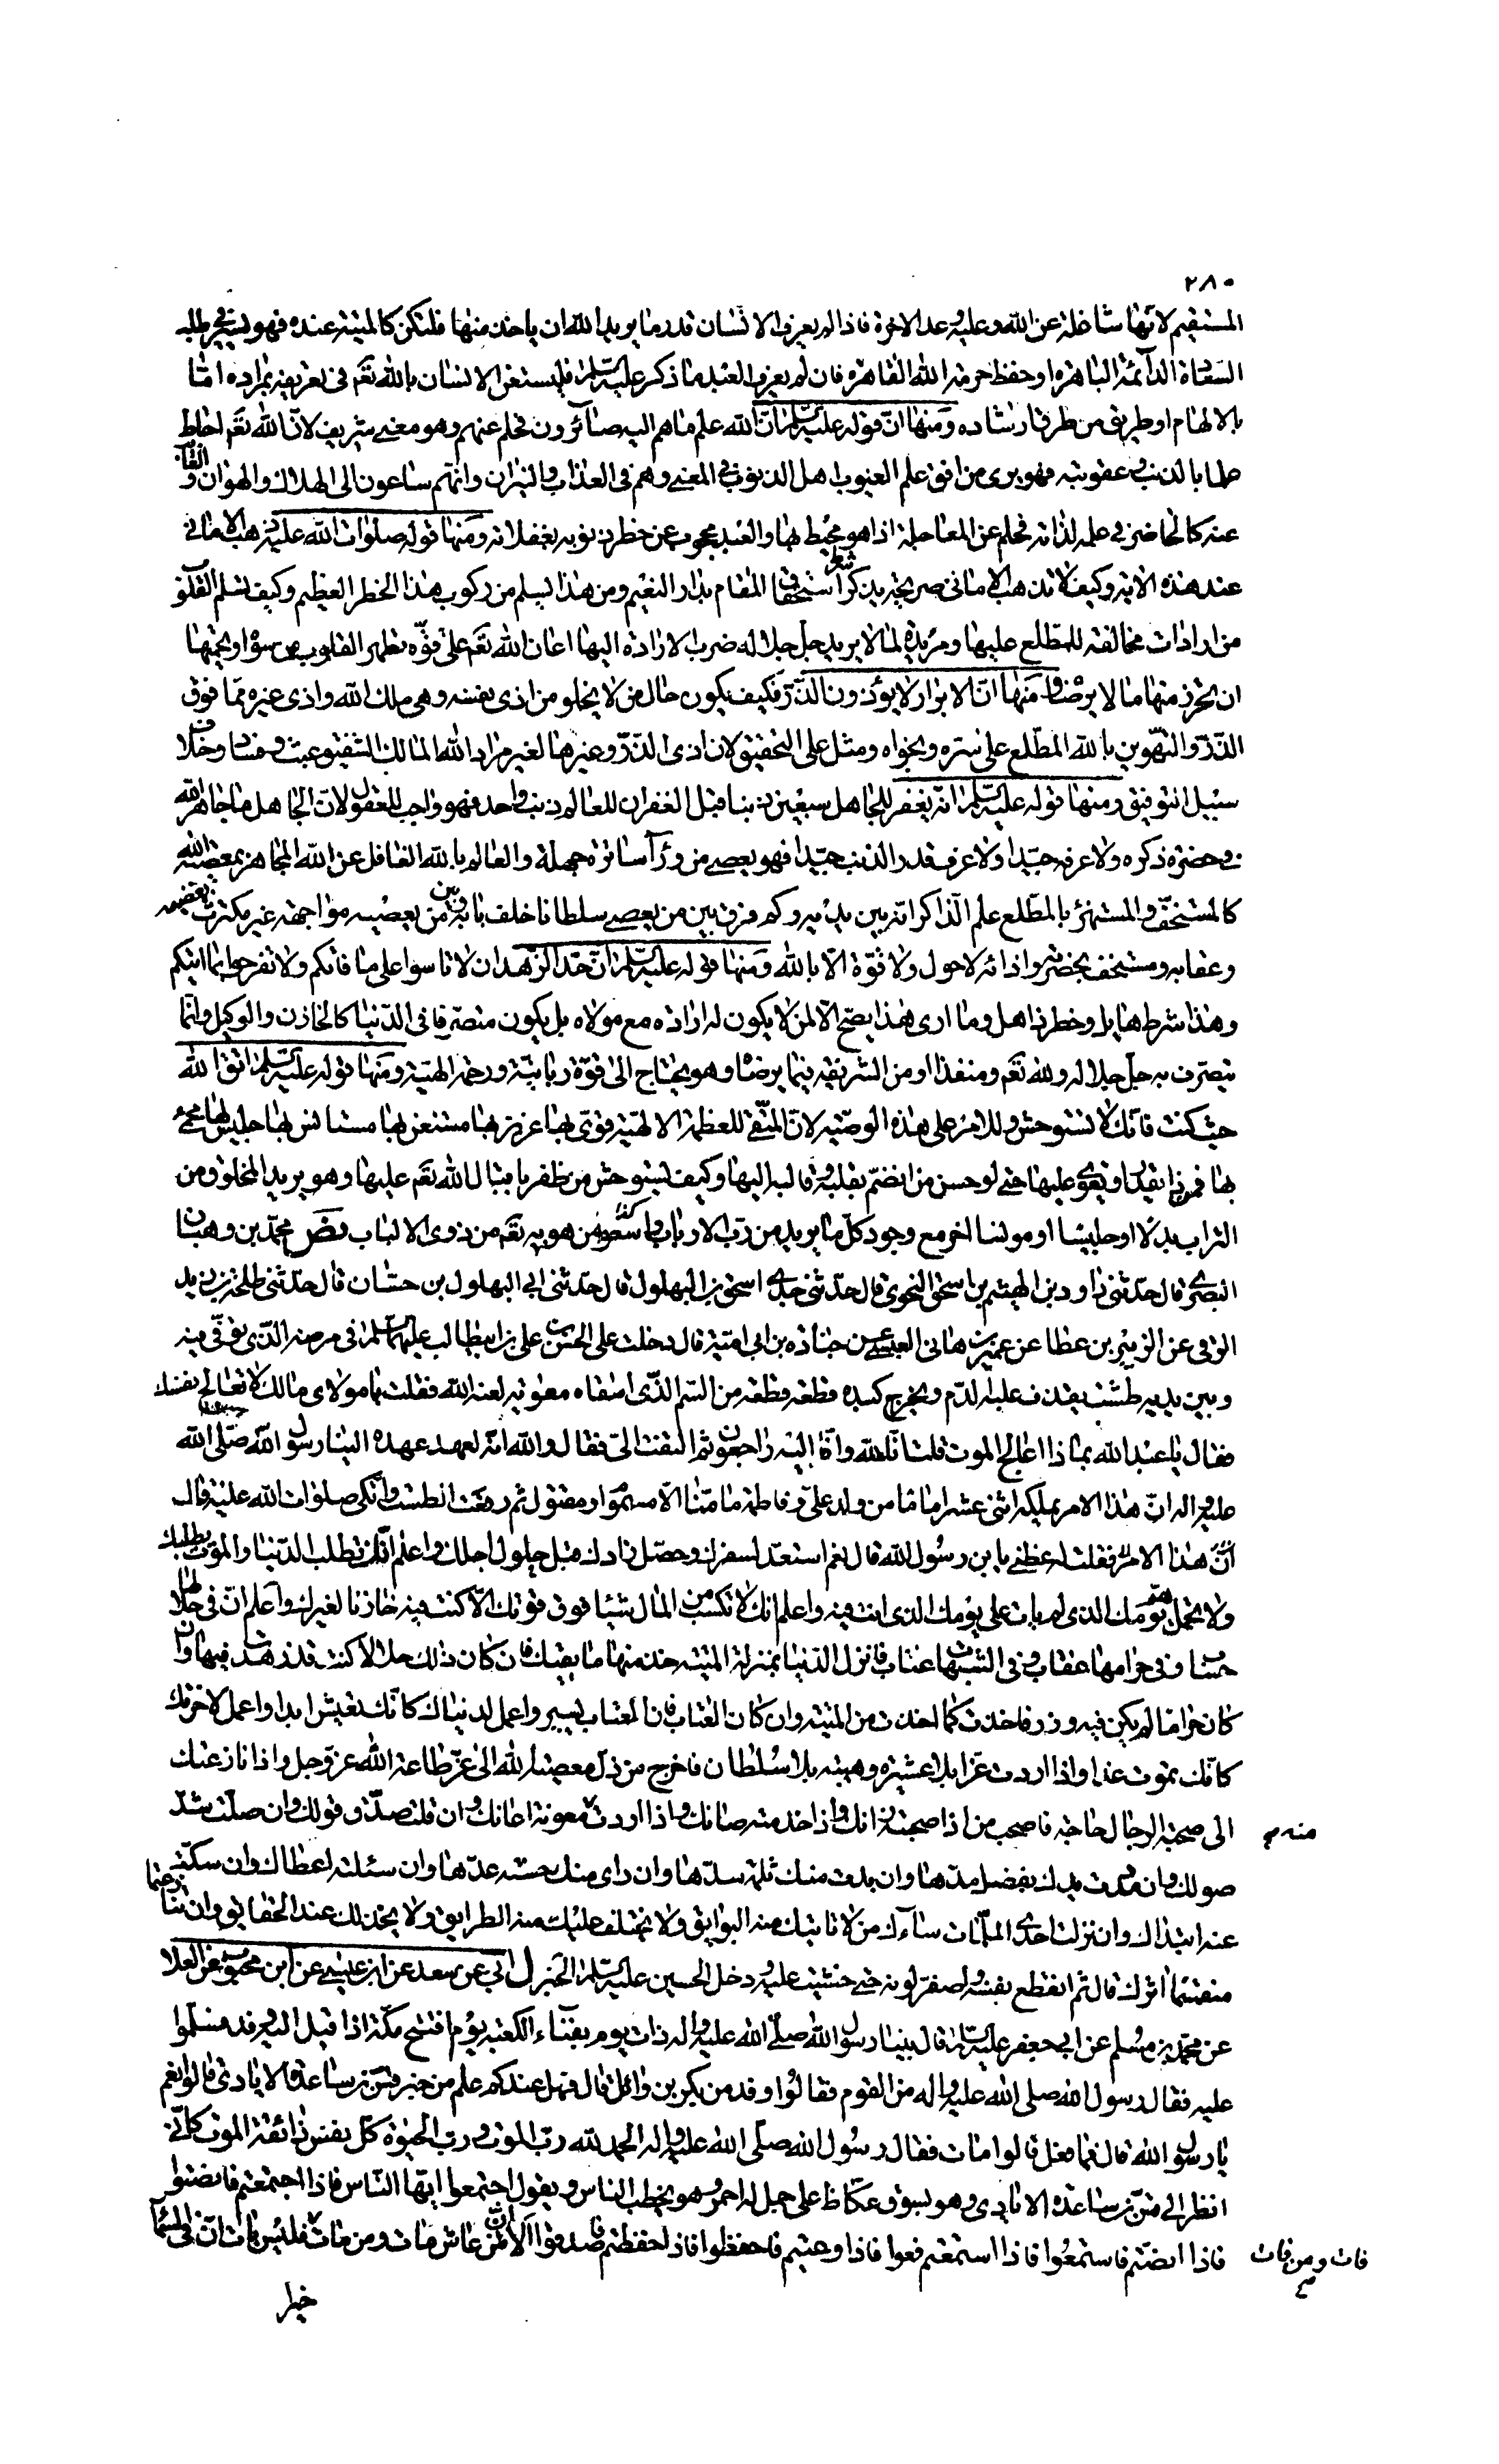 ٢٨٠
المستقيم لانها شاغلة عن الله وعليه وعد الاخرة فاذا لم يعرف الانسان قدر ما يريد الله ان ياخذ منها فلتكن كالميتة عنده فهو يستخير طلبه
السعادة الدائمة الباهرة او حفظ حرمة الله القاهرة فان لم يعرف العبد ما ذكر عليه السلم فليستعن الانسان بالله تعم في تعريفه بمراده امّا
بالالهام او طريق من طرق ارشاده ومنها انّ قوله عليه السلم انّ الله علم ما هم اليه صآئرون فحلم عنهم وهو معنى شريف لانّ الله تعم احاط
علما بالذنب وعقوبته فهو يرى من افق علم الغيوب اهل الذنوب في المعنى وهم في العذاب والنيران وانهم ساعون الى الهلاك والهوان والغآئب
عنه كالحاضر في علمه لذاته فحلم عن المعاجلة اذا هو محيط بها والعبد محجوب عن خطر ذنوبه بغفلاته ومنها قوله صلوات الله عليه ذهب الامانى
عند هذه الاية وكيف لا تذهب الامانى صريحة بذكر شرط استحقاق المقام بدار النعيم ومن هذا يسلم من ركوب هذا الخطر العظيم وكيف تسلم القلوب
من ارادات مخالفة للمطلع عليها ومريدة لما لا يريد جل جلاله ضرب الارادة اليها اعان الله تعم على قوّة تطهر القلوب من سواه ويحميها
ان تحرز منها ما لا يرضاه ومنها انّ الابرار لا يؤذون الذّرّ فكيف يكون حال من لا يخلو من اذى نفسه وهى ملك الله واذى غيره ممّا فوق
الذّرّ والتهوين بالله المطّلع على سرّه ونجواه ومثل على التحقيق لان اذى الذرّ وغيرها لغير مراد الله المالك الشفيق عبث وفساد وخلاف
سبيل التوفيق ومنها قوله عليه السلم انّه يغفر للجاهل سبعين ذنبا قبل الغفران للعالم ذنب واحد فهو واجب للعقول لانّ الجاهل ما جاهر الله
في حضرة ذكره ولا عرفه جيّدا ولا عرف قدر الذنب جيّدا فهو يعصى من ورآء ستارة جهله والعالم بالله الغافل عن الله المجاهر بمعصية الله
كالمستخفّ والمستهزئ بالمطّلع على الذاكر انّه بين يديه وكم فرق بين من يعصى سلطانا خلف بابه وبين من يعصيه مواجهة غير مكترث بغضبه
وعقابه ومستخف بحضرته واذائه لا حول ولا قوّة الّا بالله ومنها قوله عليه السلم انّ حدّ الزهد ان لا تاسوا على ما فاتكم ولا تفرحوا بما اتيكم
وهذا شرط هايل وخطر ذاهل وما ارى هذا يصحّ الّا لمن لا يكون له ارادة مع مولاه بل يكون متصرّفا في الدّنيا كالخازن والوكيل وانّما
يتصرف به جلّ جلاله ولله تعم ومنفذا اومن الشريفة فيما يرضاه وهو يحتاج الى قوّة ربانيّة ورحمة الهيّة ومنها قوله عليه السلم اتق الله
حيث كنت فانّك لا تستوحش وللامر على هذه الوصيّة لانّ المتّقى للعظمة الالهيّة قوىّ بها عزيز بها مستغن بها مستانس بها جليس لها محى
بها فمن ذا يقدر او يقوى عليها حتى لو حسن من انضم بقلبه وقالبه اليها وكيف يستوحش من ظفر باقبال الله تعم عليها وهو يريد المخلوق من
التراب بدلا او جليسا او مونسا اخر مع وجود كلّ ما يريد من ربّ الارباب من هو به تعم من ذوى الالباب نص محمّد بن وهبان
البصرى قال حدّثنى داود بن الهيثم بن اسحق النحوى قال حدّثنى جدى اسحق بن البهلول قال حدّثنى ابى البهلول بن حسّان قال حدّثنى طلحة بن زيد
الرقى عن الزبير بن عطا عن عمير بن هانى العبسى عن جنادة بن ابى اميّة قال دخلت على الحسن بن على بن ابيطالب عليهما السلم في مرضه الذّى توفّى فيه
وبين يديه طشت يقذف عليه الدّم ويخرج كبده قطعة قطعة من السّم الذّى اسقاه معوية لعنه الله فقلت يا مولاى مالك لا تعالج نفسك
فقال يا عبد الله بماذا اعالج الموت قلت انّا لله وانّا اليه راجعون ثم التفت الىّ فقال والله انّه لعهد عهده الينا رسول الله صلّى الله
عليه واله انّ هذا الامر يملكه اثنى عشر اماما من ولد علىّ وفاطمة ما منّا الّا مسموم او مقتول ثم رفعت الطشت واتّكى صلوات الله عليه قال
فقلت له عظنى يا بن رسول الله قال نعم استعدّ لسفرك وحصّل زادك قبل حلول اجلك واعلم انّك تطلب الدّنيا والموت يطلبك
ولا تحمل همّ يومك الذى لم يات على يومك الذى انت فيه واعلم انّك لا تكسب من المال شيئا فوق قوتك الّا كنت فيه خازنا لغيرك واعلم انّ في حلالها
حساب وفى حرامها عقاب وفى الشبهات عتاب فانزل الدّنيا بمنزلة الميتة خذ منها ما يكفيك فان كان ذلك حلالا كنت قد زهدت فيها وان
كان حراما لم يكن فيه وزر فاخذت كما اخذت من الميتة وان كان العتاب فانّ العتاب يسير واعمل لدنياك كانّك تعيش ابدا واعمل لاخرتك
كانّك تموت غدا واذا اردت عزّا بلا عشيرة وهيبة بلا سلطان فاخرج من ذلّ معصية الله الى عزّ طاعة الله عزّ وجل واذا نازعتك
الى صحبة الرجال حاجة فاصحب من اذا صحبته زانك واذا خدمته صانك واذا اردت منه معونة اعانك وان قلت صدّق قولك وان صلت شدّ
صولك وان مددت يدك بفضل مدّها وان بدت منك ثلمة سدّها وان راى منك حسنة عدّها وان سئلته اعطاك وان سكتّ
عنه ابتداك وان نزلت احدى الملمّات ساءك من لا تاتيك منه البوايق ولا تختلف عليك منه الطرايق ولا يخذلك عند الحقايق وان تنازعتما
منفسّا اثرك قال ثم انقطع نفسه واصفرّ لونه حتى خشيت عليه ودخل الحسين عليه السلم الخبر ل ابى عن سعد عن ابن عيسى عن ابن محبوب عن العلا
عن محمّد بن مسلم عن ابى جعفر عليه السلم قال بينا رسول الله صلّى الله عليه واله ذات يوم بفنآء الكعبة يوم افتتح مكّة اذا قبل اليه وفد فسلّموا
عليه فقال رسول الله صلى الله عليه واله من القوم فقالوا وفد من بكر بن وائل قال فهل عندكم علم من خبر قسّ بن ساعدة الايادىّ قالوا نعم
يا رسول الله قال فما فعل قالوا مات فقال رسول الله صلّى الله عليه واله الحمد لله ربّ الموت وربّ الحيوة كلّ نفس ذائقة الموت كانّى
انظر الى قسّ بن ساعدة الايادى وهو بسوق عكاظ على جمل له احمر وهو يخطب الناس ويقول اجتمعوا ايّها النّاس فاذا اجتمعتم فانصتوا
فاذا انصتّم فاستمعوا فاذا استمعتم فعوا فاذا وعيتم فاحفظوا فاذا حفظتم فاصدقوا الا انّه من عاش مات ومن مات فليس بات انّ في السّما
منه م
فات ومن فات
خبرا